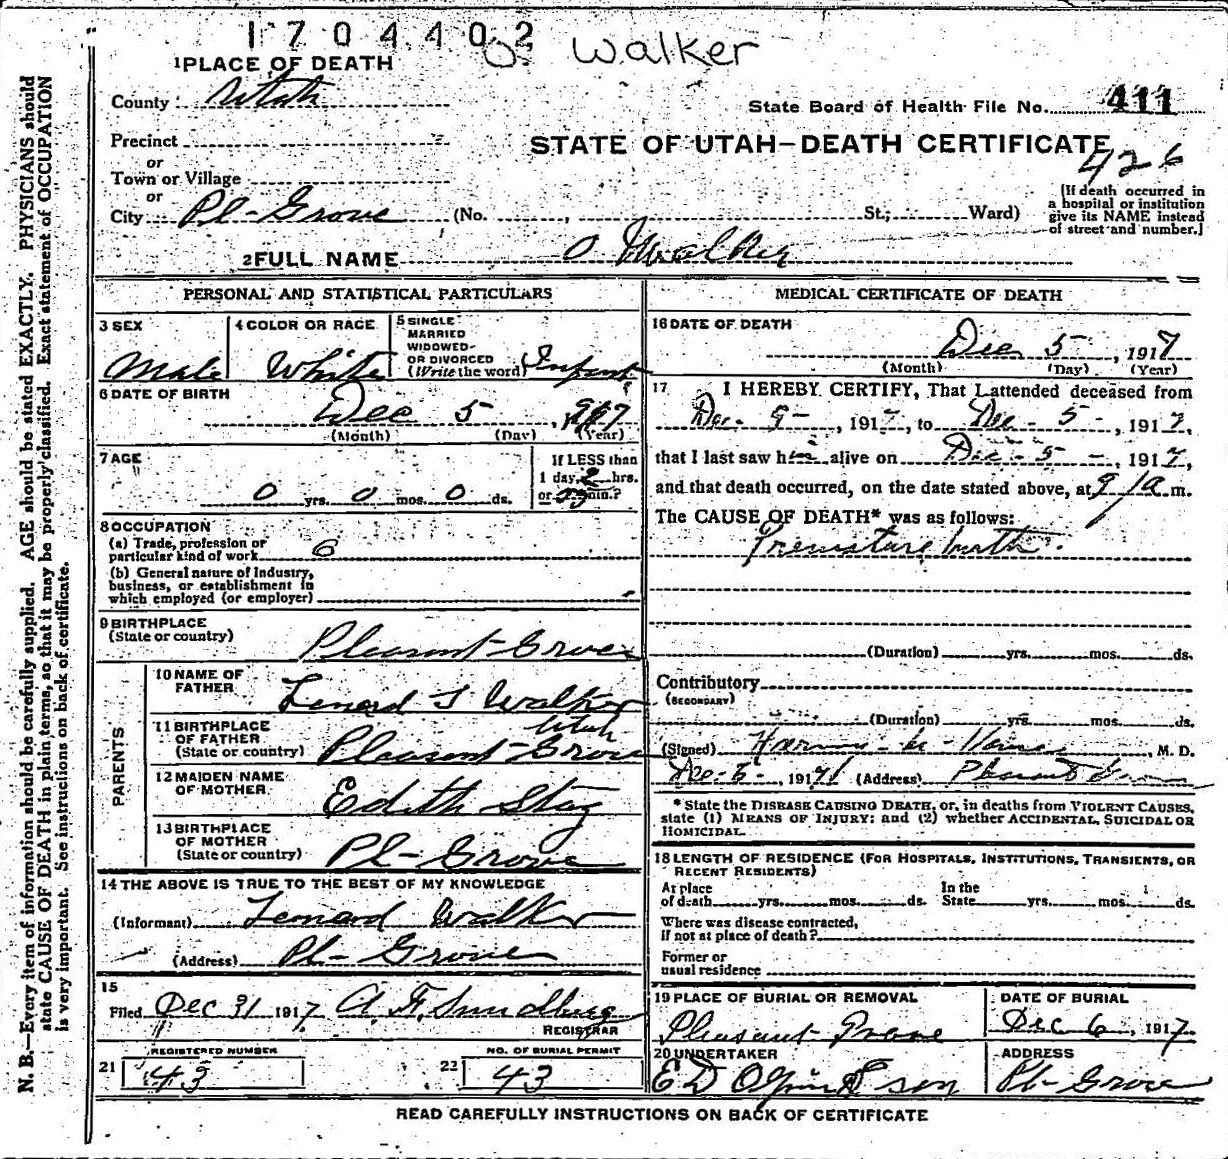 1704402
O. Walker
1 PLACE OF DEATH
County Utah
State Board of Health File No. 411
Precinct
STATE OF UTAH—DEATH CERTIFICATE
426
or
Town or Village
or
City Pl-Grove (No. , St.; Ward)
(If death occurred in
a hospital or institution
give its NAME instead
of street and number.]
2 FULL NAME O Walker
PERSONAL AND STATISTICAL PARTICULARS
3 SEX
Male
4 COLOR OR RACE
White
5 SINGLE
MARRIED
WIDOWED
OR DIVORCED
(Write the word) Infant
6 DATE OF BIRTH
Dec 5 1917
(Month) (Day) (Year)
7 AGE
0 yrs. 0 mos. 0 ds.
If LESS than
1 day, 2 hrs.
or min.?
8 OCCUPATION
(a) Trade, profession or
particular kind of work
(b) General nature of Industry,
business, or establishment in
which employed (or employer)
9 BIRTHPLACE
(State or country) Pleasant-Grove
PARENTS
10 NAME OF
FATHER
Lenard J Walker
11 BIRTHPLACE
OF FATHER
(State or country) Pleasant-Grove Utah
12 MAIDEN NAME
OF MOTHER
Edith Stag
13 BIRTHPLACE
OF MOTHER
(State or country) Pl-Grove
14 THE ABOVE IS TRUE TO THE BEST OF MY KNOWLEDGE
(Informant) Lenard Walker
(Address) Pl-Grove
15
Filed Dec 31 1917 A. F. Sundburg
REGISTRAR
21 REGISTERED NUMBER
43
22 NO. OF BURIAL PERMIT
43
MEDICAL CERTIFICATE OF DEATH
16 DATE OF DEATH
Dec 5, 1917
(Month) (Day) (Year)
17 I HEREBY CERTIFY, That I attended deceased from
Dec- - , 1917, to Dec- 5-, 1917,
that I last saw him alive on Dec-5-, 1917,
and that death occurred, on the date stated above, at 9 a m.
The CAUSE OF DEATH* was as follows:
Premature birth.
(Duration) yrs. mos. ds.
Contributory
(SECONDARY)
(Duration) yrs. mos. ds.
(Signed) , M. D.
Dec-6-, 1917 (Address) Pleasant Grove
*State the DISEASE CAUSING DEATH, or, in deaths from VIOLENT CAUSES,
state (1) MEANS OF INJURY: and (2) whether ACCIDENTAL, SUICIDAL OR
HOMICIDAL.
18 LENGTH OF RESIDENCE (FOR HOSPITALS, INSTITUTIONS, TRANSIENTS, OR
RECENT RESIDENTS)
At place
of death yrs. mos. ds.
In the
State yrs. mos. ds.
Where was disease contracted,
if not at place of death?
Former or
usual residence
19 PLACE OF BURIAL OR REMOVAL
Pleasant Grove
DATE OF BURIAL
Dec 6, 1917
20 UNDERTAKER
E D Olpin & son
ADDRESS
Pl-Grove
READ CAREFULLY INSTRUCTIONS ON BACK OF CERTIFICATE
N. B.—Every item of information should be carefully supplied. AGE should be stated EXACTLY. PHYSICIANS should
state CAUSE OF DEATH in plain terms, so that it may be properly classified. Exact statement of OCCUPATION
is very important. See instructions on back of certificate.